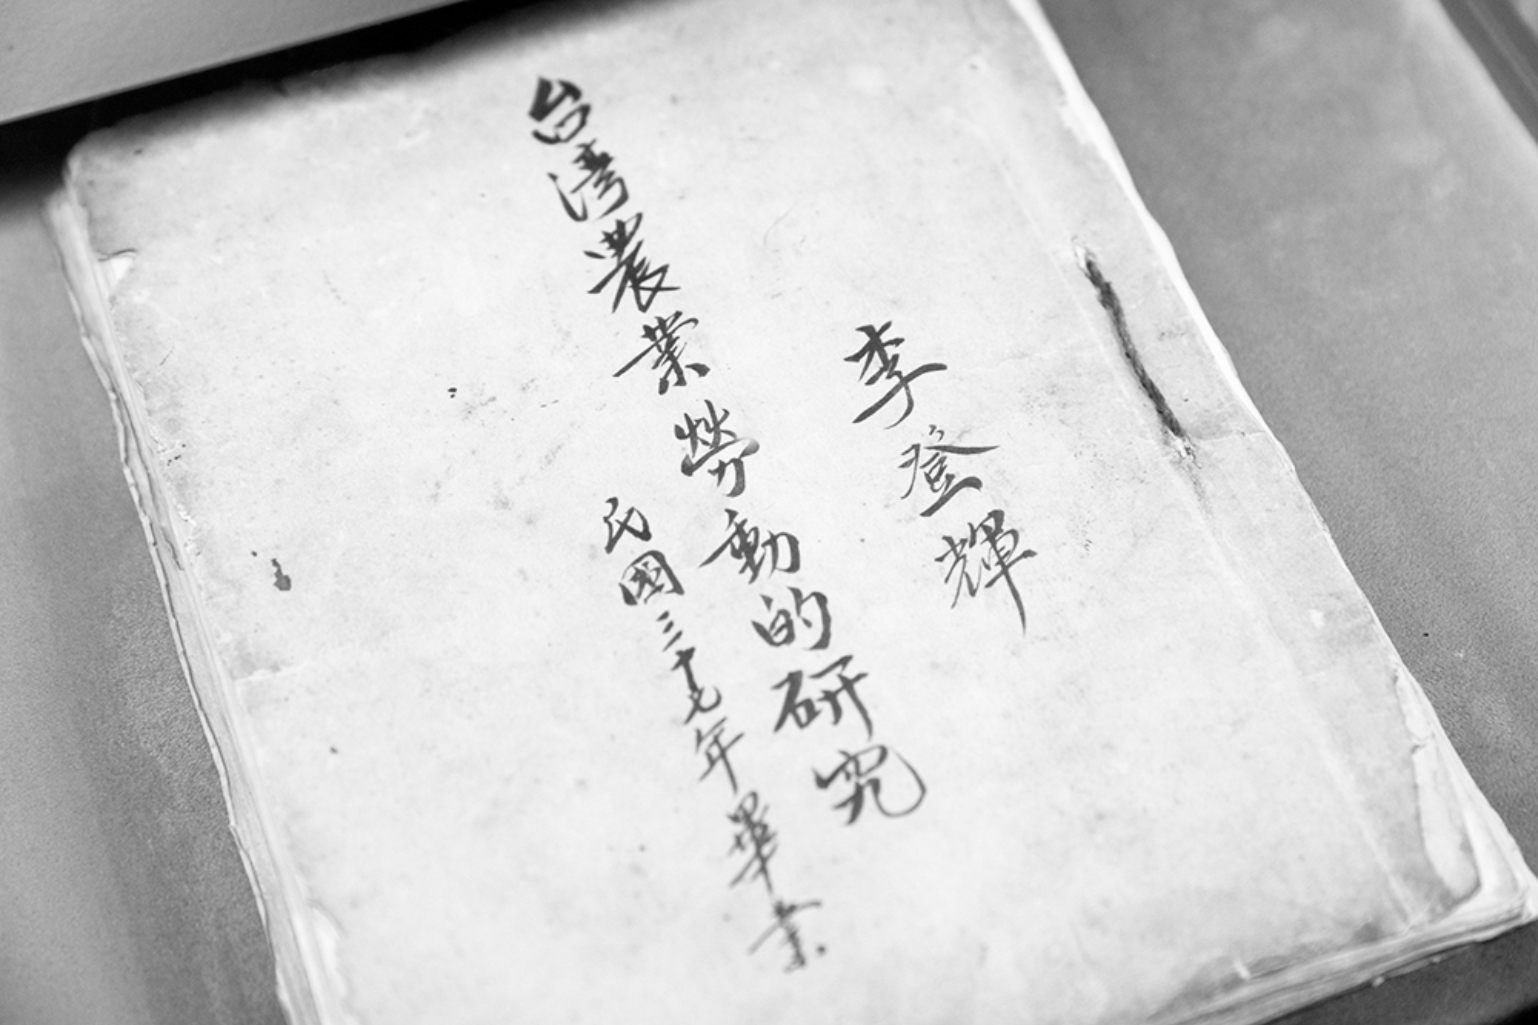 李登輝
台湾農業勞動的研究
民國三十七年畢業